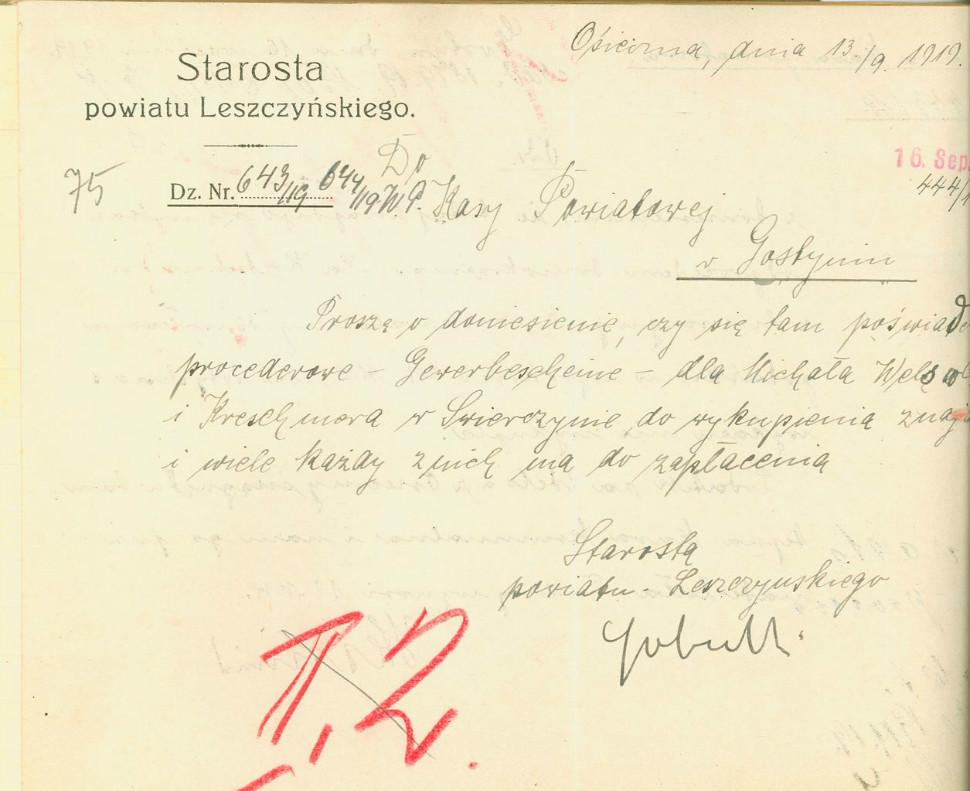 Osieczna, dnia 13/9. 1919.
Starosta
powiatu Leszczyńskiego.
16. Sep
444/1
75
Dz. Nr. 643/19 644/19
Do
W. P. Kasy Powiatowej
w Gostyniu
Proszę o doniesienie, czy się tam poświad
procederowe - Gewerbescheine - dla Michała
i Kreschmera w Swierczynie do wykupienia znajd
i wiele każdy z nich ma do zapłacenia
Starosta
powiatu Leszczyńskiego
II, 2.